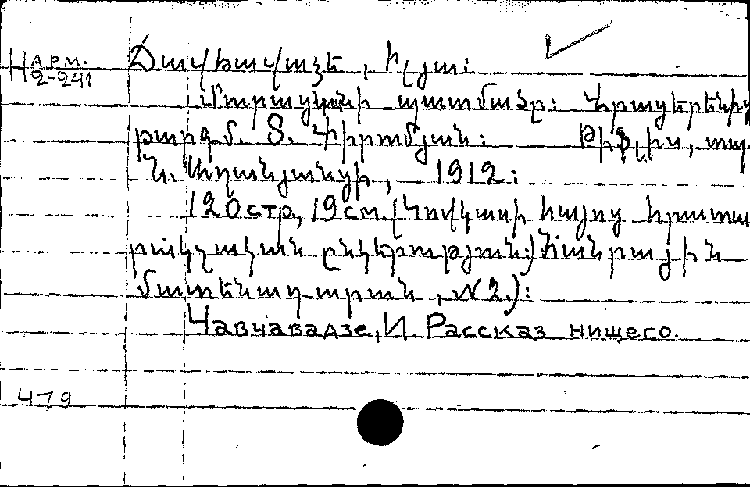 Н АРМ.
2-241
Ճավճավաձե, Իլյա։
Մուրացկանի պատմածը։ Վրացերենից
թարգմ. Տ. Փիրումյան։ Թիֆլիս, տպ.
Ն. Աղանյանցի, 1912։
120стр, 19см. (Կովկասի հայոց հրատա
րակչական ընկերություն։) Հանրային
մատենադարան, №2.)։
Чавчавадзе, И. Рассказ нищего.
479